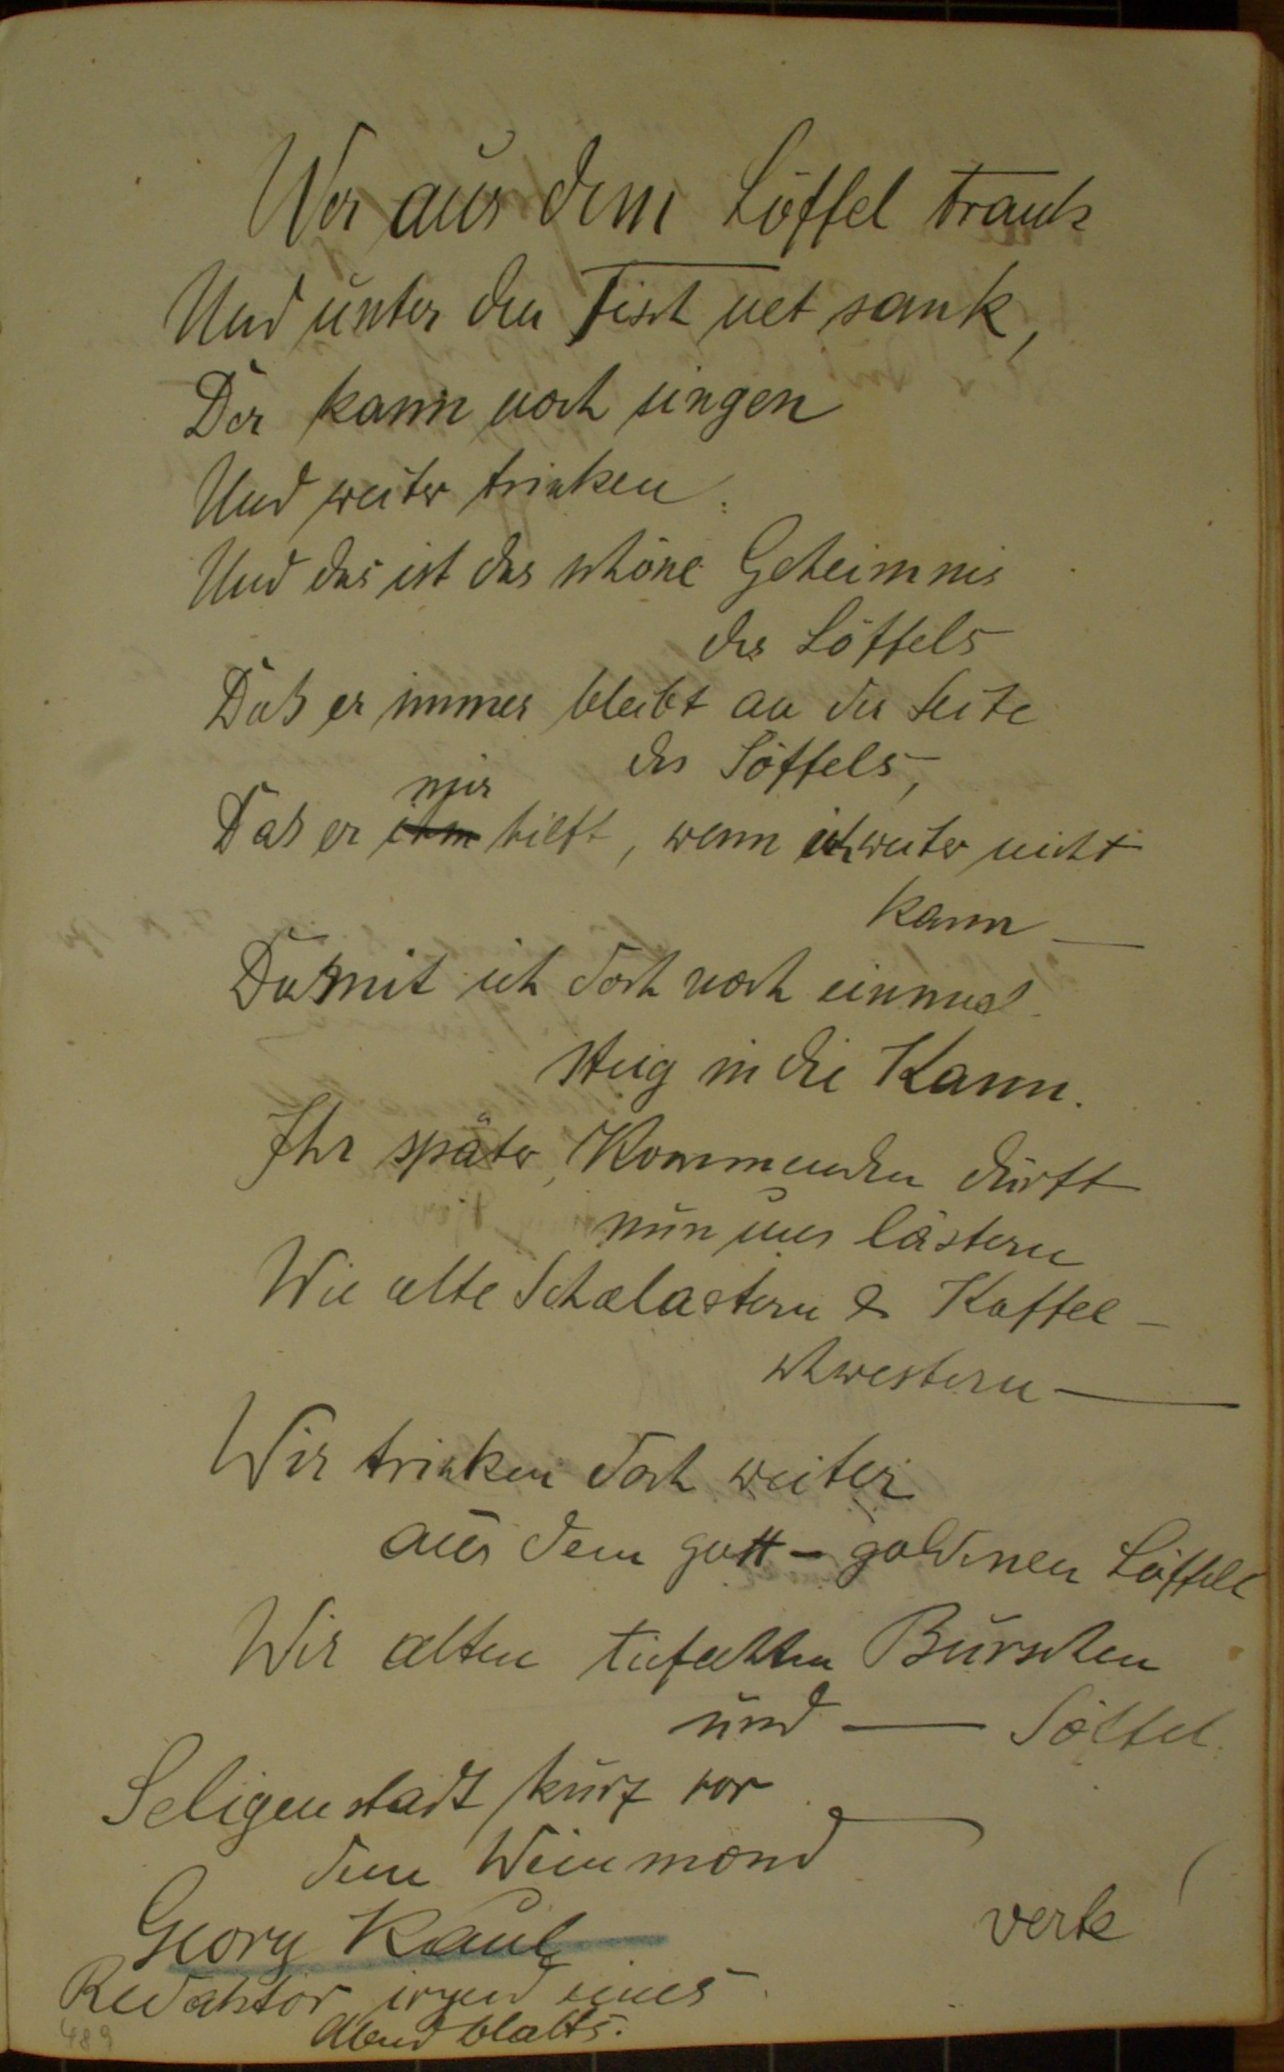 Wer aus dem Löffel trank
Und unter den Tisch net sank,
Der kann noch singen
Und weiter trinken.
Und das ist das schöne Geheimnis
des Löffels
Daß er immer bleibt an der Seite
des Söffels,
mir
Daß er ihm hilft, wenn ich weiter nicht
kann —
Damit ich doch noch einmal
steig in die Kann.
Ihr später Kommenden dürft
nun uns lästern
Wie alte Schalastern & Kaffee-
schwestern —
Wir trinken doch weiter
aus dem gott-goldnen Löffel
Wir alten tiefechten Burschen
und — Söffel.
Seligenstadt kurz vor
dem Weinmond
Georg Kaul
Redaktor irgend eines
Abendblatts.
489